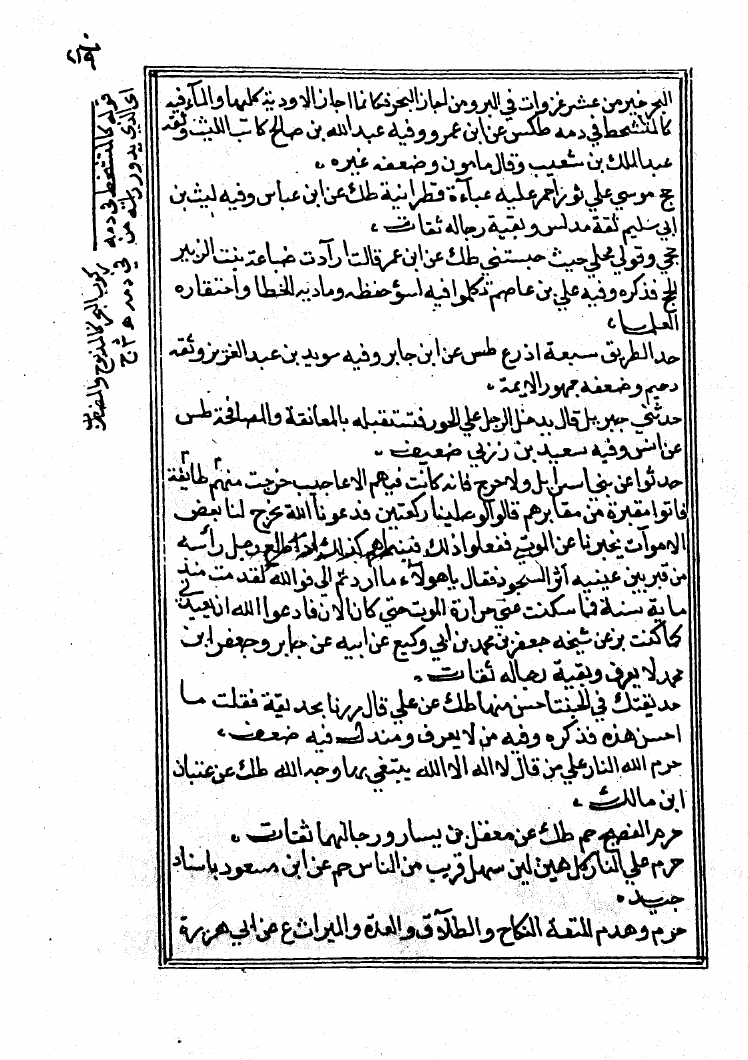 البحر خير من عشر غزوات في البر ومن اجاز البحر فكانما اجاز الاودية كلها والمائد فيه
كالمتشحط في دمه طكس عن ابن عمرو وفيه عبد الله بن صالح كاتب الليث وثقه
عبد الملك بن شعيب وقال مامون وضعفه غيره
حج موسي علي ثور احمر عليه عباءة قطرانية طك عن ابن عباس وفيه ليث بن
ابي سليم ثقة مدلس وبقية رجاله ثقات
حجي وقولي محلي حيث حبستني طك عن ابن عمر قالت ارادت ضباعة بنت الزبير
الحج فذكره وفيه علي بن عاصم تكلموا فيه لسوء حفظه وماديه للخطا واحتقاره
العلما
حد الطريق سبعة اذرع طس عن جابر وفيه سويد بن عبد العزيز وثقه
دحيم وضعفه جمهور الايمة
حدثني جبريل قال يدخل الرجل علي الحور فتستقبله بالمعانقة والمصافحة طس
عن انس وفيه سعيد بن زربي ضعيف
حدثوا عن بني اسرايل ولا حرج فانه كانت فيهم الاعاجيب خرجت منهم طايفة
فاتوا مقبرة من مقابرهم قالوا لو صلينا ركعتين فدعونا الله يخرج لنا بعض
الاموات يخبرنا عن الموت ففعلوا ذلك فبينما هم كذلك اذ اطلع رجل راسه
من قبر بين عينيه اثر السجود فقال يا هولاء ما اردتم الي فوالله لقد مت منذ
ماية سنة فما سكنت عني حرارة الموت حتي كان الان فادعوا الله ان يعيدني
كما كنت بز عن شيخه جعفر بن محمد بن ابي وكيع عن ابيه عن جابر وجعفر ابن
محمد لا يعرف وبقية رجاله ثقات
حديقتك في الجنة احسن منها طك عن علي قال مررنا بحديقة فقلت ما
احسن هذه فذكره وفيه من لا يعرف ومندل فيه ضعف
حرم الله النار علي من قال لا اله الا الله يبتغي بها وجه الله طك عن عتبان
ابن مالك
حرم الفضيخ حم طك عن معقل بن يسار ورجالهما ثقات
حرم علي النار كل هين لين سهل قريب من الناس حم عن ابن مسعود باسناد
جيد
حرم وهدم المتعة النكاح والطلاق والعدة والميراث ع عن ابي هريرة
قوله كالمتشحط في دمه
اي الذي يدور راسه من
ركوب البحر كالمذبوح والمضطرب
في دمه